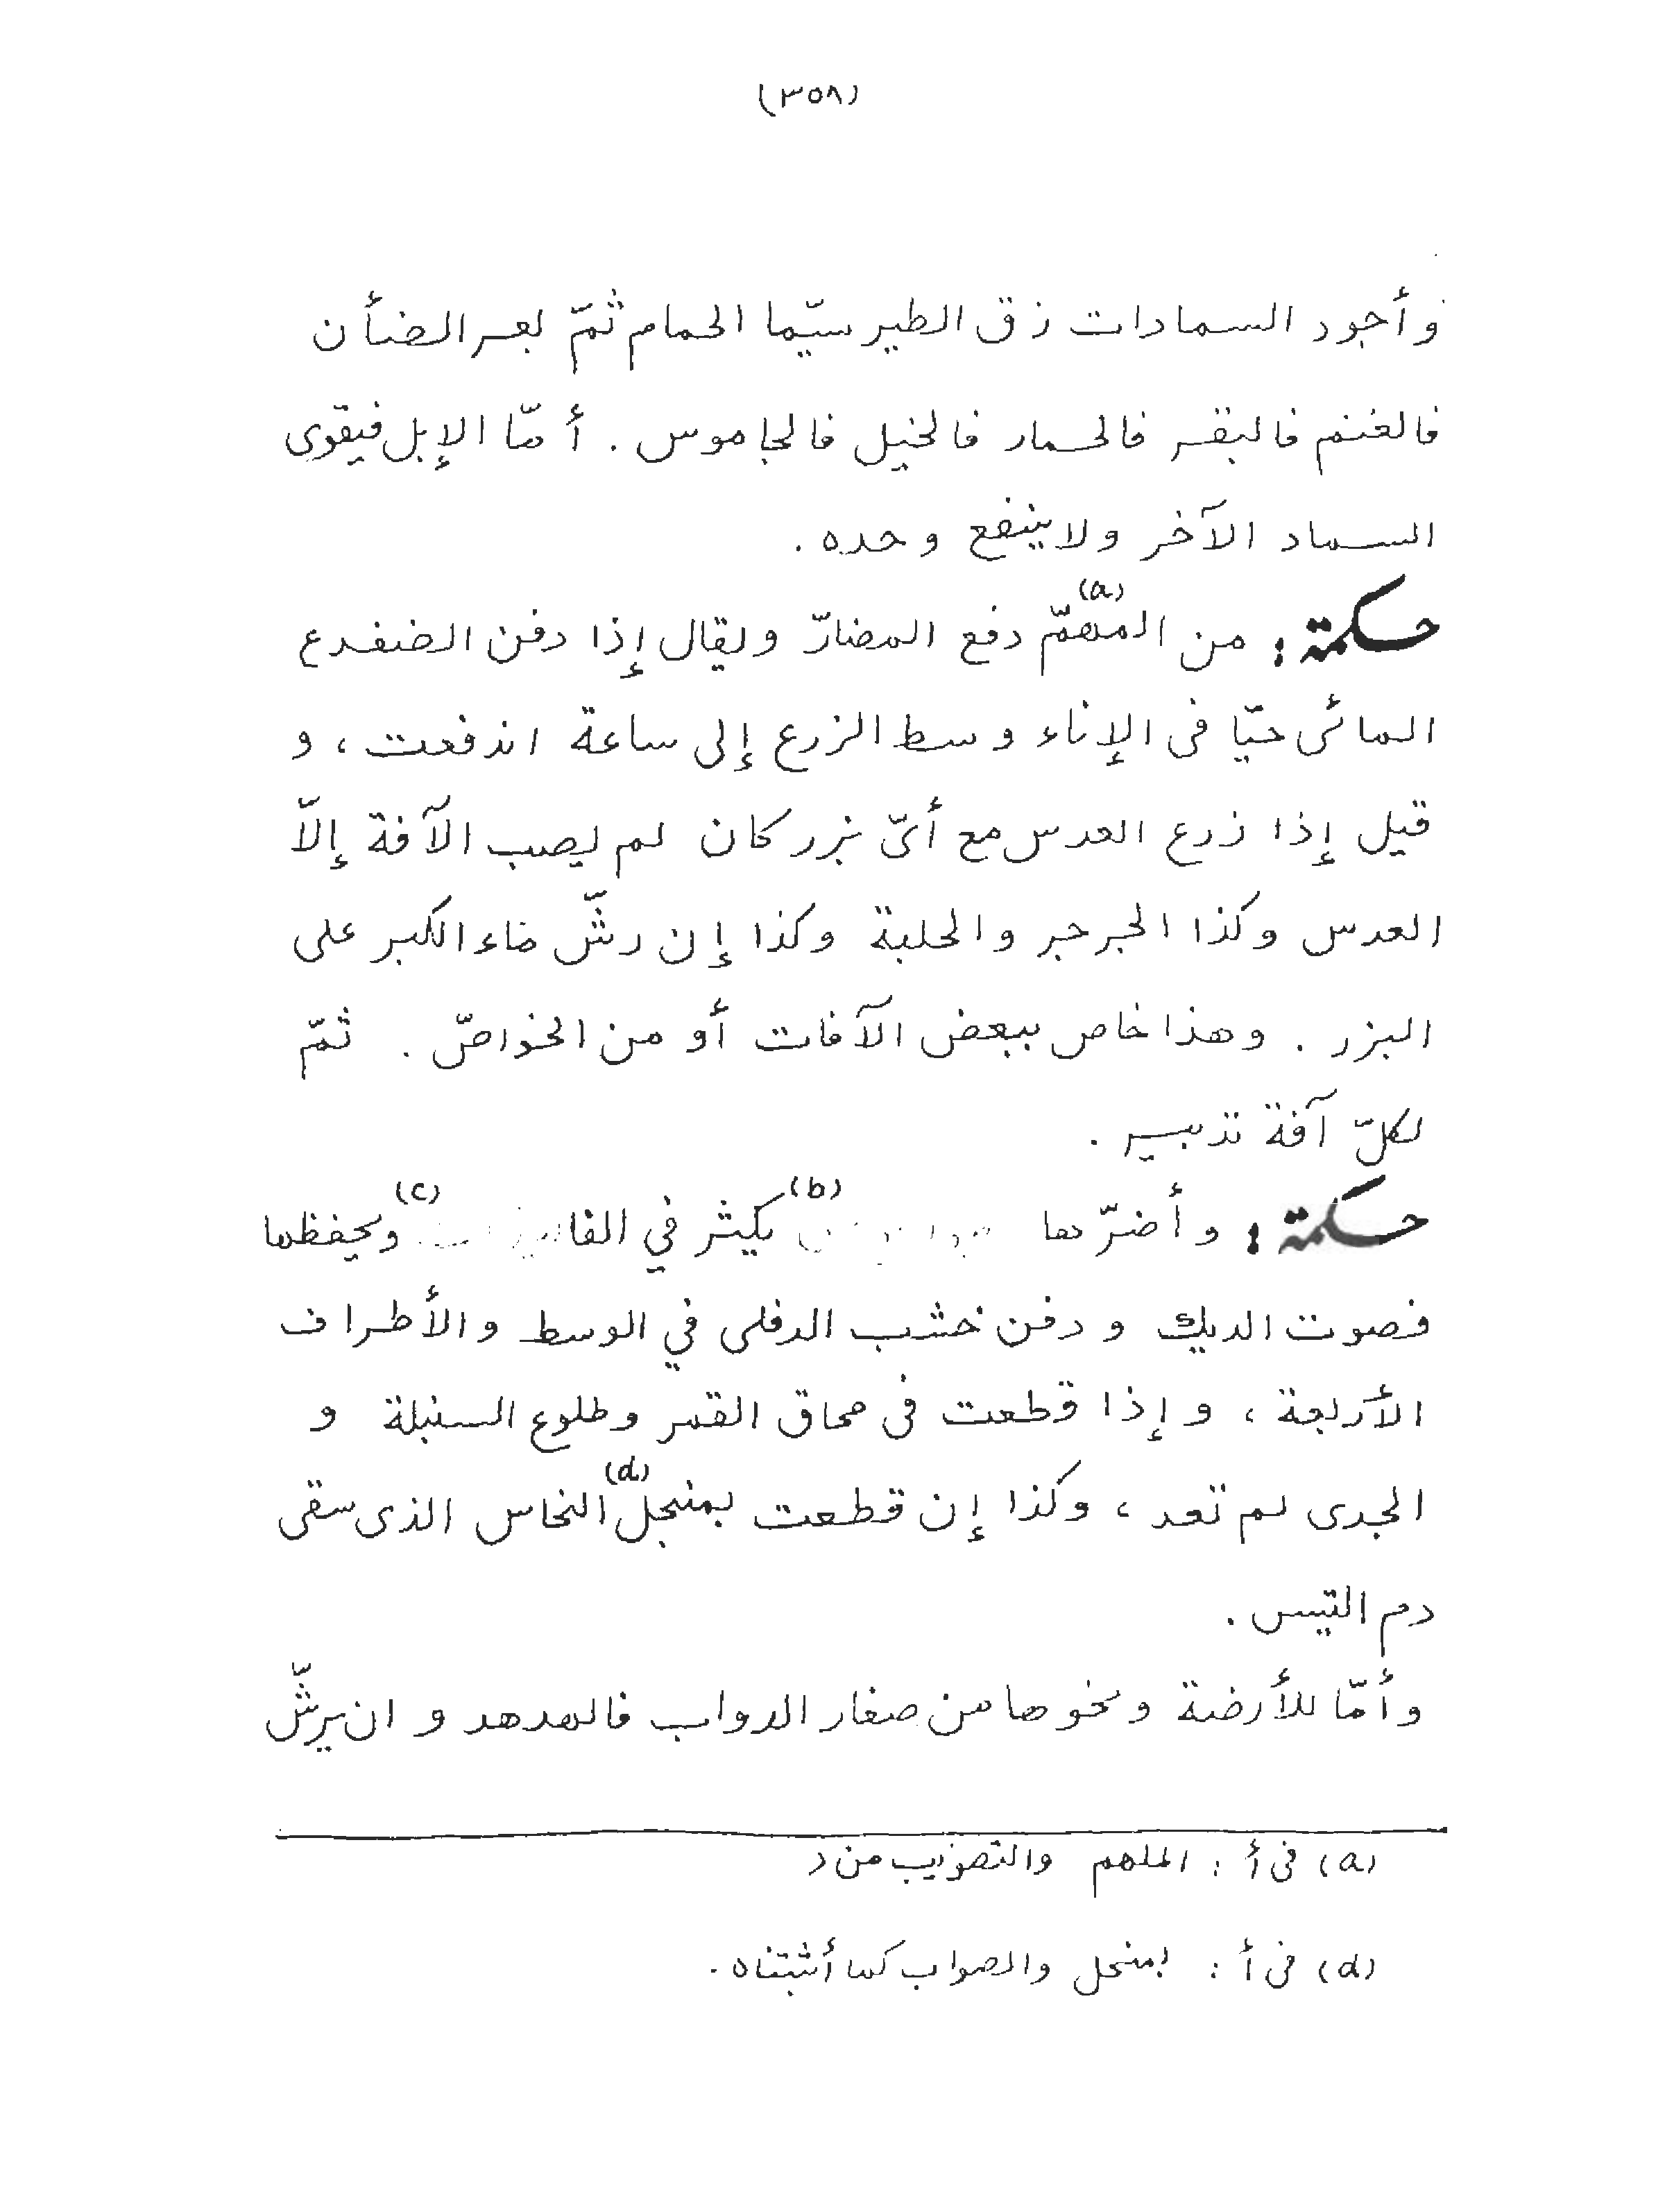 (٣٥٨)
وأجود السمادات زق الطير سيّما الحمام ثمّ بعر الضأن
فالغنم فالبقر فالحمار فالخيل فالجاموس . أمّا الإبل فيقوى
السماد الآخر ولا ينفع وحده .
حكمة : من المهمّ (a) دفع المضارّ ويقال إذا دفن الضفدع
المائى حيّا فى الإناء وسط الزرع إلى ساعة اندفعت ، و
قيل إذا زرع العدس مع أىّ بزر كان لم يصب الآفة إلّا
العدس وكذا الجرجر والحلبة وكذا إن رشّ ماء الكبر على
البزر . وهذا خاص ببعض الآفات أو من الخواصّ . ثمّ
لكلّ آفة تدبير .
حكمة : وأضرّها (b) يكثر في (c) ويحفظها
فصوت الديك ودفن خشب الدفلى في الوسط والأطراف
الأربعة ، وإذا قطعت فى محاق القمر وطلوع السنبلة و
الجدى لم تعد ، وكذا إن قطعت بمنجل (d) النحاس الذى سقى
دم التيس .
وأمّا للأرضة ونحوها من صغار الدواب فالهدهد وان يرشّ
(a) فى أ : الملهم والتصويب من د
(d) فى أ : بمنحل والصواب كما أثبتناه .